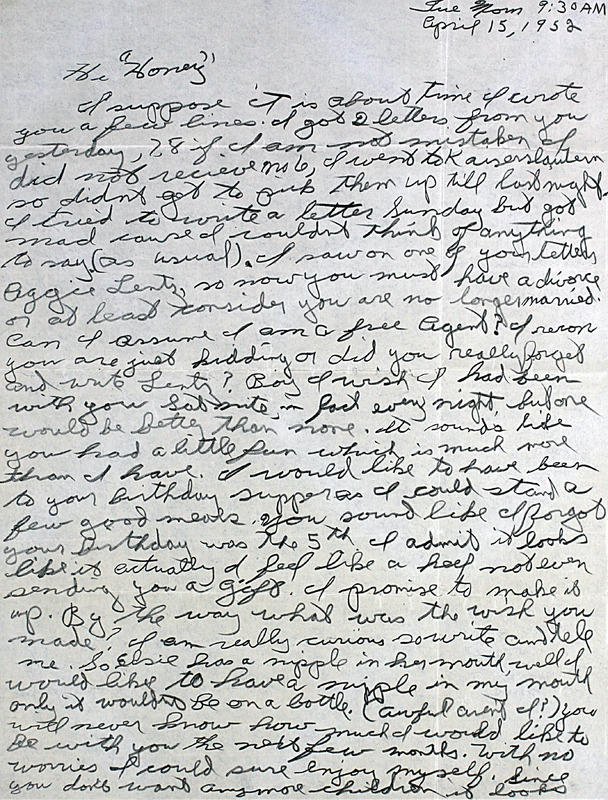 Tue Morn 9:30 AM
April 15, 1952
Hi "Honey"
I suppose it is about time I wrote
you a few lines. I got 2 letters from you
yesterday, 7, 8 if I am not mistaken I
did not recieve no 6, I went to Kaiserslautern
so didnt get to pick them up till last night
I tried to write a letter Sunday but got
mad cause I couldnt think of anything
to say (as usual). I saw on one of your letters
Aggie Lentz, so now you must have a divorce
or at least consider you are no longer married.
Can I assume I am a free agent? I recon
you are just kidding or did you really forget
and write Lentz? Boy I wish I had been
with you Sat nite, in fact every night, but one
would be better than none. It sounds like
you had a little fun which is much more
than I have. I would like to have been
to your birthday supper as I could stand a
few good meals. You sound like I forgot
your Birthday was the 5th I admit it looks
like it actually I feel like a heel not even
sending you a gift. I promise to make it
up. By the way what was the wish you
made? I am really curious so write and tele
me. So Elsie has a nipple in her mouth, well I
would like to have a nipple in my mouth
only it wouldnt be on a bottle. (awful arent I?) you
will never know how much I would like to
be with you the next few months. With no
worries I could sure enjoy myself. Since
you dont want anymore children it looks